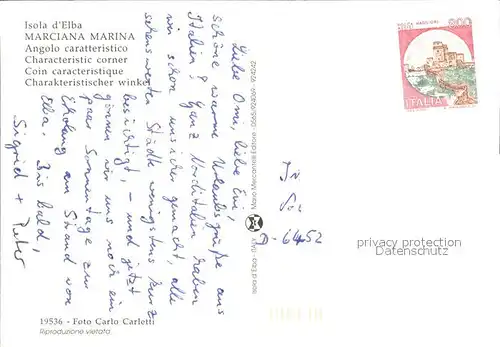 Isola d'Elba
MARCIANA MARINA
Angolo caratteristico
Characteristic corner
Coin caracteristique
Charakteristischer winkel
Liebe Omi, liebe Evi,
schöne warme Urlaubsgrüße aus
Italien! Ganz Norditalien haben
wir schon unsicher gemacht, alle
sehenswerten Städte wenigstens kurz
besichtigt, - und jetzt
gönnen wir uns noch ein
paar Sonnentage zur
Erholung am Strand von
Elba. Bis bald,
Sigrid + Peter
19536 - Foto Carlo Carletti
Riproduzione vietata
Isola d'Elba
Mario Mercantelli Editore
900
ITALIA
D-6452
privacy protection
watermark